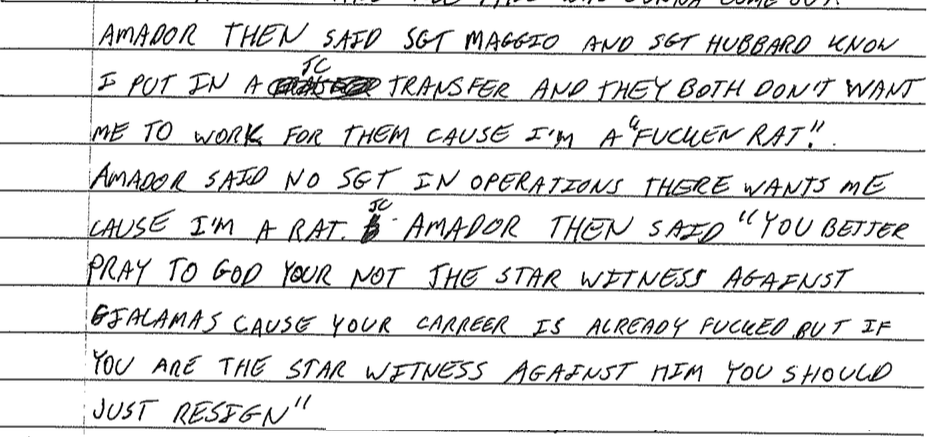 AMADOR THEN SAID SGT MAGGIO AND SGT HUBBARD KNOW
JC
I PUT IN A TRANSFER AND THEY BOTH DON'T WANT
ME TO WORK FOR THEM CAUSE I'M A "FUCKEN RAT".
AMADOR SAID NO SGT IN OPERATIONS THERE WANTS ME
JC
CAUSE I'M A RAT. AMADOR THEN SAID "YOU BETTER
PRAY TO GOD YOUR NOT THE STAR WITNESS AGAINST
GIALAMAS CAUSE YOUR CARREER IS ALREADY FUCKED BUT IF
YOU ARE THE STAR WITNESS AGAINST HIM YOU SHOULD
JUST RESIGN"